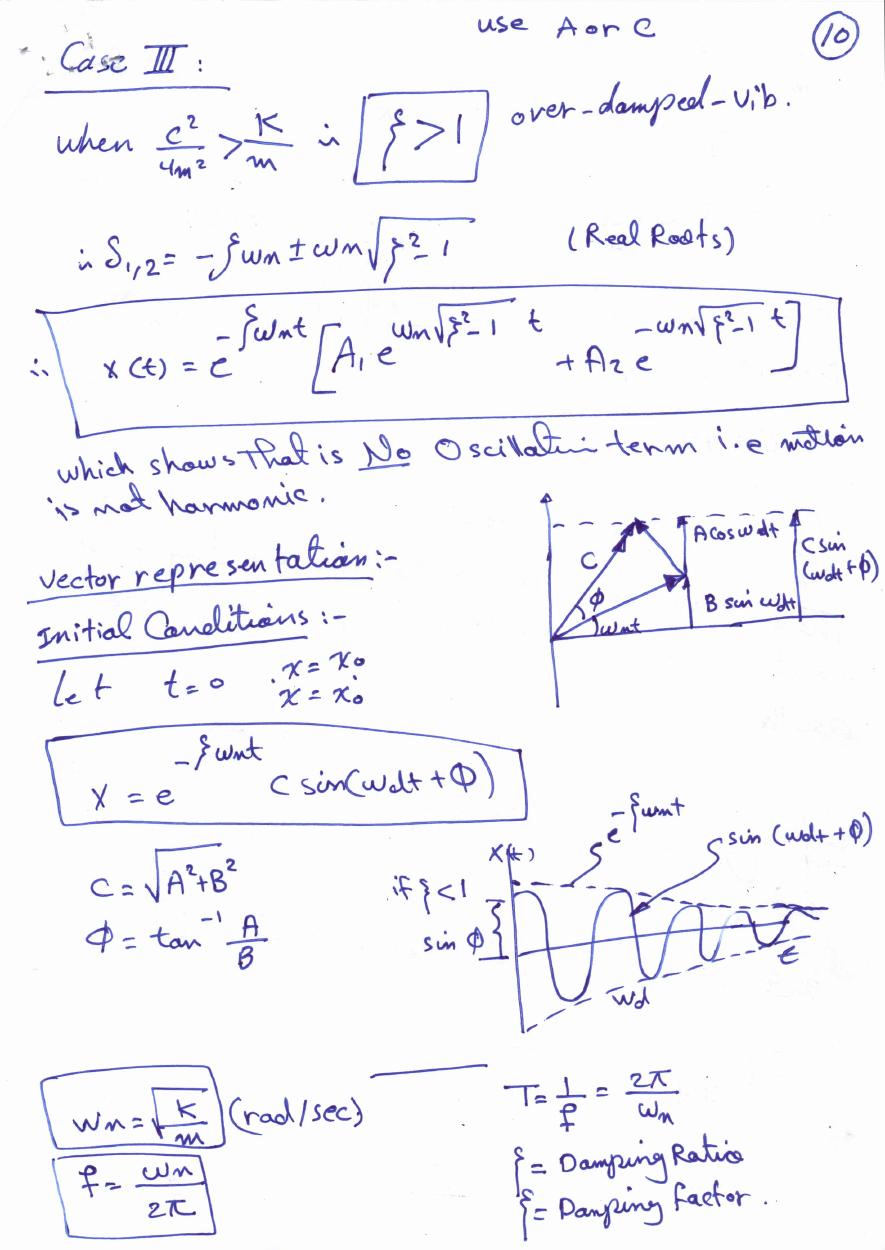 use A or C
10
Case III :
when c²/4m² > K/m is ξ > 1 over-damped-vib.
is S₁,₂ = -ξwn ± wn√(ξ²-1) (Real Roots)
∴ x(t) = e^(-ξwnt) [A₁ e^(wn√(ξ²-1) t) + A₂ e^(-wn√(ξ²-1) t)]
which shows that is No Oscillation term i.e motion
is not harmonic.
Vector representation :-
C
φ
wnt
A cos wdt
B sin wdt
C sin (wdt + φ)
Initial Conditions :-
Let t=0 x = x₀
ẋ = ẋ₀
X = e^(-ξwnt) C sin(wdt + φ)
C = √(A²+B²)
φ = tan⁻¹ A/B
X(t)
e^(-ξwnt)
sin (wdt + φ)
if ξ<1
sin φ
t
wd
wn = √(K/m) (rad/sec)
f = wn/2π
T = 1/f = 2π/wn
ξ = Damping Ratio
ξ = Damping factor .